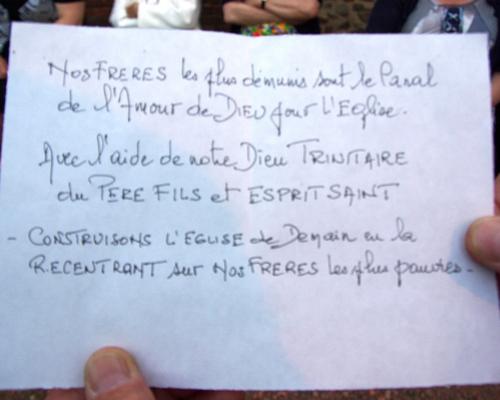 NOS FRERES les plus démunis sont le Canal
de l'Amour de DIEU pour L'Eglise.
Avec l'aide de notre Dieu TRINITAIRE
du PERE FILS et ESPRIT SAINT
- CONSTRUISONS L'EGLISE de Demain en la
RECENTRANT sur NOS FRERES les plus pauvres.